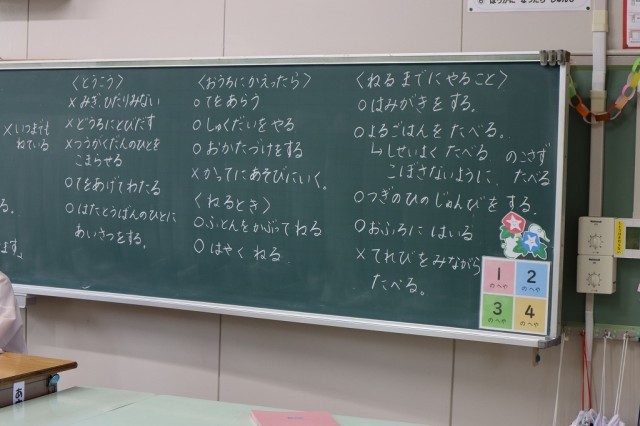 ×いつまでも
ねている
る。
ます。
〈とうこう〉
×みぎ、ひだりみない
×どうろにとびだす
×つうがくだんのひとを
こまらせる
○てをあげてわたる
○はたとうばんのひとに
あいさつをする。
〈おうちにかえったら〉
○てをあらう
○しゅくだいをやる
○おかたづけをする
×かってにあそびにいく。
〈ねるとき〉
○ふとんをかぶってねる
○はやくねる
〈ねるまでにやること〉
○はみがきをする。
○よるごはんをたべる。
↳しせいよくたべる のこさず
こぼさないように たべる
○つぎのひのじゅんびをする。
○おふろにはいる
×てれびをみながら
たべる。
1
のへや
2
のへや
3
のへや
4
のへや